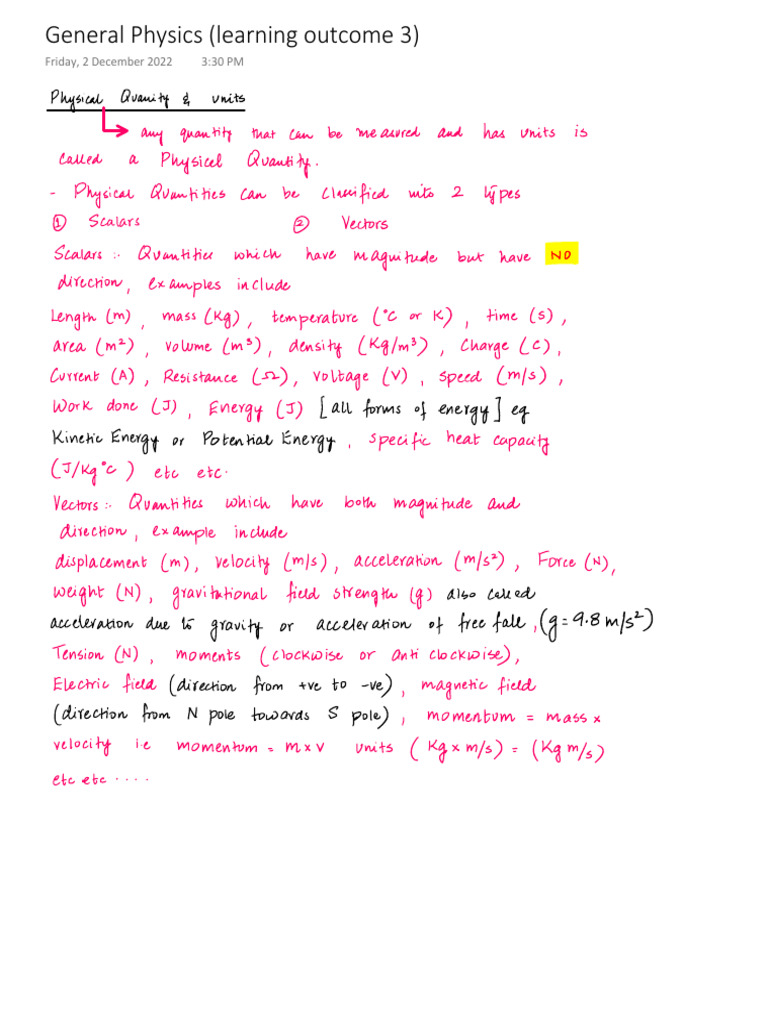 General Physics (learning outcome 3)
Friday, 2 December 2022 3:30 PM
Physical Quanity & units
any quantity that can be measured and has units is
called a Physicel Quantity.
- Physical Quantities can be classified into 2 types
① Scalars ② Vectors
Scalars :- Quantities which have magnitude but have NO
direction, examples include
Length (m), mass (Kg), temperature (°C or K), time (s),
area (m²), volume (m³), density (Kg/m³), Charge (C),
Current (A), Resistance (Ω), voltage (V), speed (m/s),
Work done (J), Energy (J) [all forms of energy] eg
Kinetic Energy or Potential Energy, specific heat capacity
(J/Kg°C) etc etc.
Vectors :- Quantities which have both magnitude and
direction, example include
displacement (m), velocity (m/s), acceleration (m/s²), Force (N),
weight (N), gravitational field strength (g) also called
acceleration due to gravity or acceleration of free fall, (g = 9.8 m/s²)
Tension (N), moments (clockwise or anti clockwise),
Electric field (direction from +ve to -ve), magnetic field
(direction from N pole towards S pole), momentum = mass x
velocity i.e momentum = m x v units (Kg x m/s) = (Kg m/s)
etc etc ....